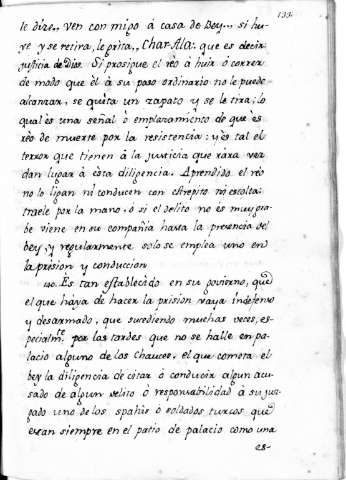 133.
le dize,, ven con migo à casa de Bey,,, si hu-
ye y se retira, le grita,, Char-Ala: que es decir
justicia de Dios. Si prosigue el reo à huir ò correr
de modo que èl à su paso ordinario no le puede
alcanzar, se quita un zapato y se le tira; lo
qual es una señal ò emplazamiento de que es
rèo de muerte por la resistencia: y es tal el
terror que tienen à la justicia que rara vez
dan lugar à esta diligencia. Aprendido el reo
no lo ligan ni conducen con estrepito ni escolta:
traele por la mano, ò si el delito no es muy gra-
be viene en su compañia hasta la presencia del
bey, y regularmente solo se emplea uno en
la prision y conduccion
110. Es tan establecido en su govierno, que
el que haya de hacer la prision vaya indefenso
y desarmado, que sucediendo muchas veces, es-
pecialmte. por las tardes que no se halle en pa-
lacio alguno de los Chauces, el que cometa el
bey la diligencia de citar ò conducir algun acu-
sado de algun delito ò responsabilidad à su juz-
gado uno de los spahis ò soldados turcos que
estan siempre en el patio de palacio como una
es-